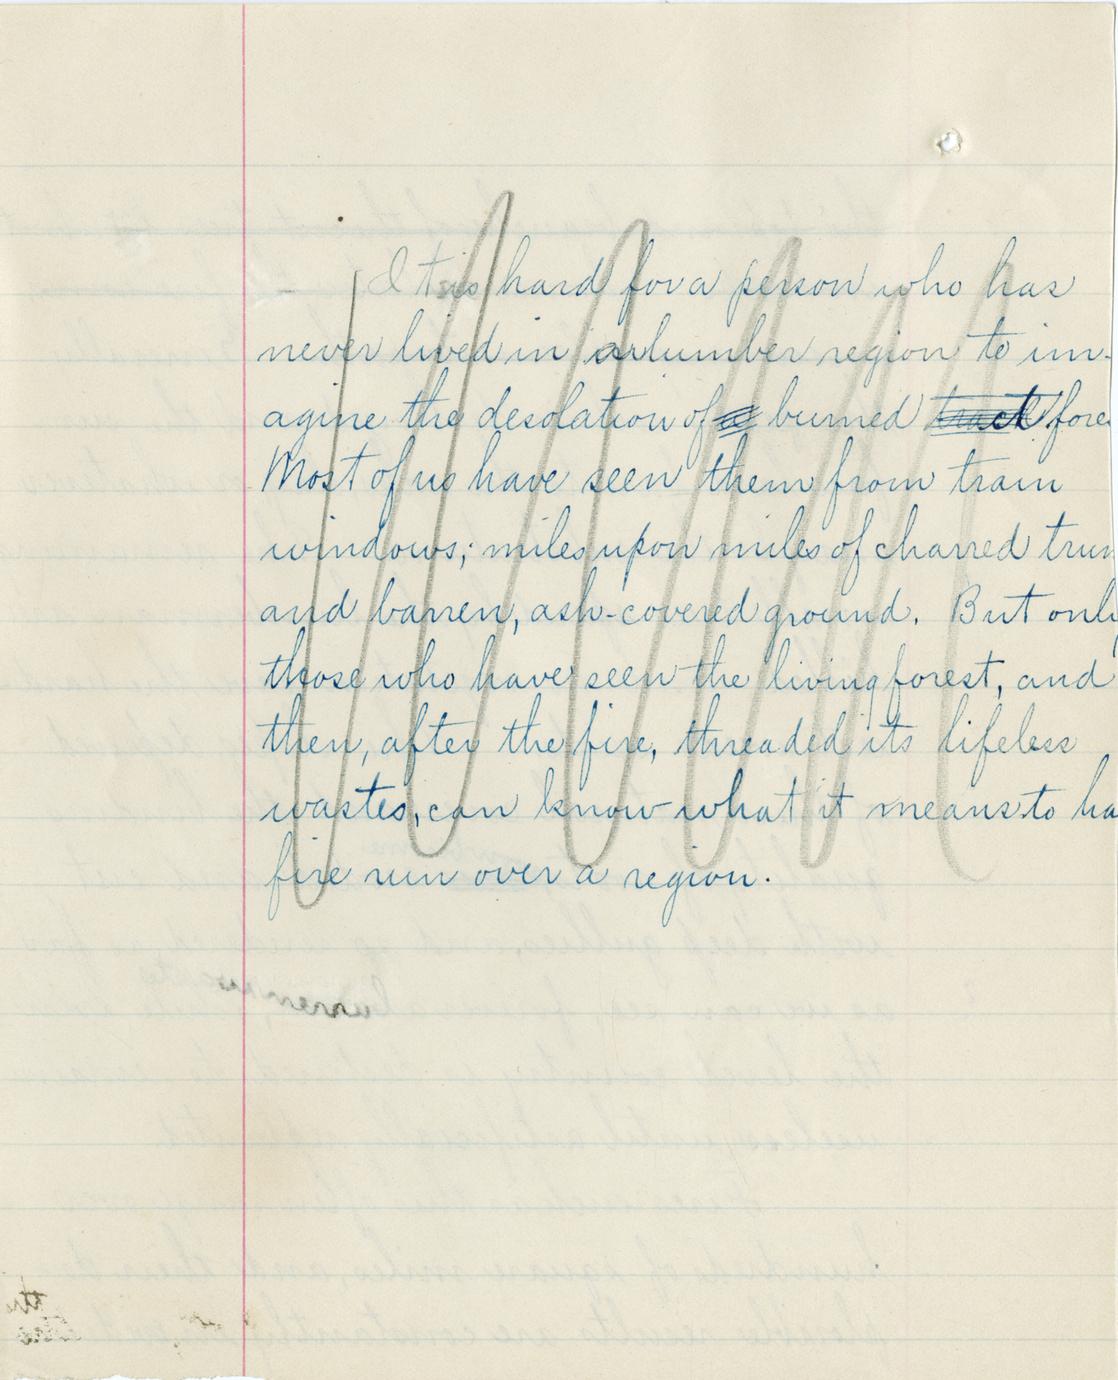 It is hard for a person who has
never lived in a lumber region to im-
agine the desolation of a burned tract fore
Most of us have seen them from train
windows; miles upon miles of charred trun
and barren, ash-covered ground. But only
those who have seen the living forest, and
then, after the fire, threaded its lifeless
wastes, can know what it means to ha
fire run over a region.